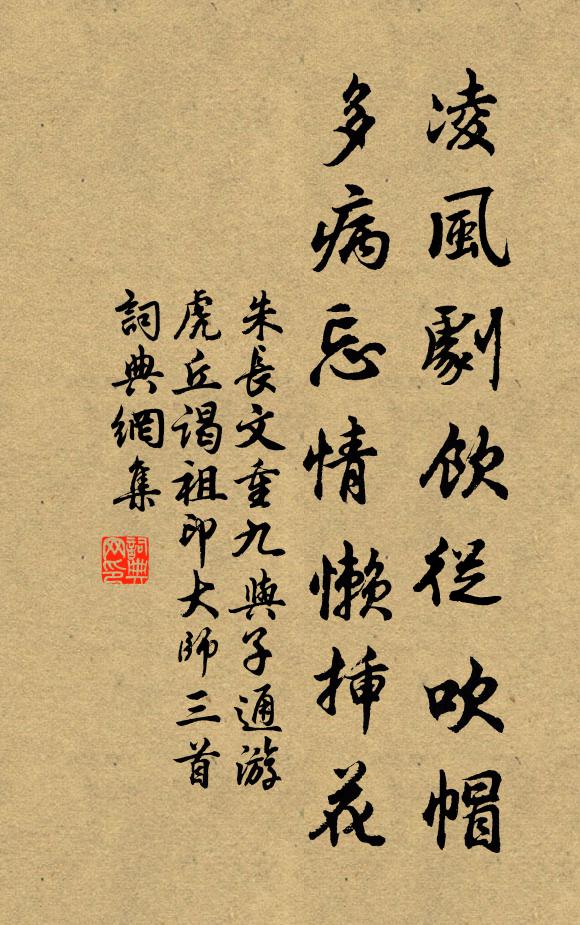 凌風劇飲從吹帽
多病忘情懶挿花
朱長文重九與子通游
虎丘謁祖印大師三首
詞典網集
詞典网印